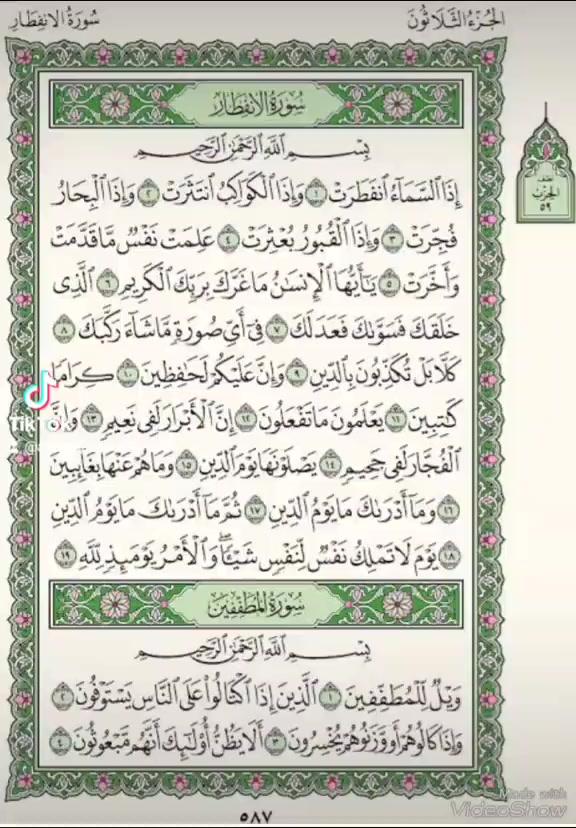 سُورَةُ الِانفِطَارِ
الجُزْءُ الثَّلَاثُونَ
سُورَةُ الِانفِطَارِ
بِسْمِ اللَّهِ الرَّحْمَٰنِ الرَّحِيمِ
إِذَا السَّمَاءُ انفَطَرَتْ ١ وَإِذَا الْكَوَاكِبُ انتَثَرَتْ ٢ وَإِذَا الْبِحَارُ
فُجِّرَتْ ٣ وَإِذَا الْقُبُورُ بُعْثِرَتْ ٤ عَلِمَتْ نَفْسٌ مَّا قَدَّمَتْ
وَأَخَّرَتْ ٥ يَٰأَيُّهَا الْإِنسَٰنُ مَا غَرَّكَ بِرَبِّكَ الْكَرِيمِ ٦ الَّذِي
خَلَقَكَ فَسَوَّىٰكَ فَعَدَلَكَ ٧ فِي أَيِّ صُورَةٍ مَّا شَاءَ رَكَّبَكَ ٨
كَلَّا بَلْ تُكَذِّبُونَ بِالدِّينِ ٩ وَإِنَّ عَلَيْكُمْ لَحَٰفِظِينَ ١٠ كِرَامًا
كَٰتِبِينَ ١١ يَعْلَمُونَ مَا تَفْعَلُونَ ١٢ إِنَّ الْأَبْرَارَ لَفِي نَعِيمٍ ١٣ وَإِنَّ
الْفُجَّارَ لَفِي جَحِيمٍ ١٤ يَصْلَوْنَهَا يَوْمَ الدِّينِ ١٥ وَمَا هُمْ عَنْهَا بِغَائِبِينَ
١٦ وَمَا أَدْرَىٰكَ مَا يَوْمُ الدِّينِ ١٧ ثُمَّ مَا أَدْرَىٰكَ مَا يَوْمُ الدِّينِ
١٨ يَوْمَ لَا تَمْلِكُ نَفْسٌ لِّنَفْسٍ شَيْـًٔا ۖ وَالْأَمْرُ يَوْمَئِذٍ لِّلَّهِ ١٩
سُورَةُ المُطَفِّفِينَ
بِسْمِ اللَّهِ الرَّحْمَٰنِ الرَّحِيمِ
وَيْلٌ لِّلْمُطَفِّفِينَ ١ الَّذِينَ إِذَا اكْتَالُوا عَلَى النَّاسِ يَسْتَوْفُونَ ٢
وَإِذَا كَالُوهُمْ أَو وَّزَنُوهُمْ يُخْسِرُونَ ٣ أَلَا يَظُنُّ أُولَٰئِكَ أَنَّهُم مَّبْعُوثُونَ ٤
٥٨٧
الحِزْب
٥٩
TikTok
Made with
VideoShow